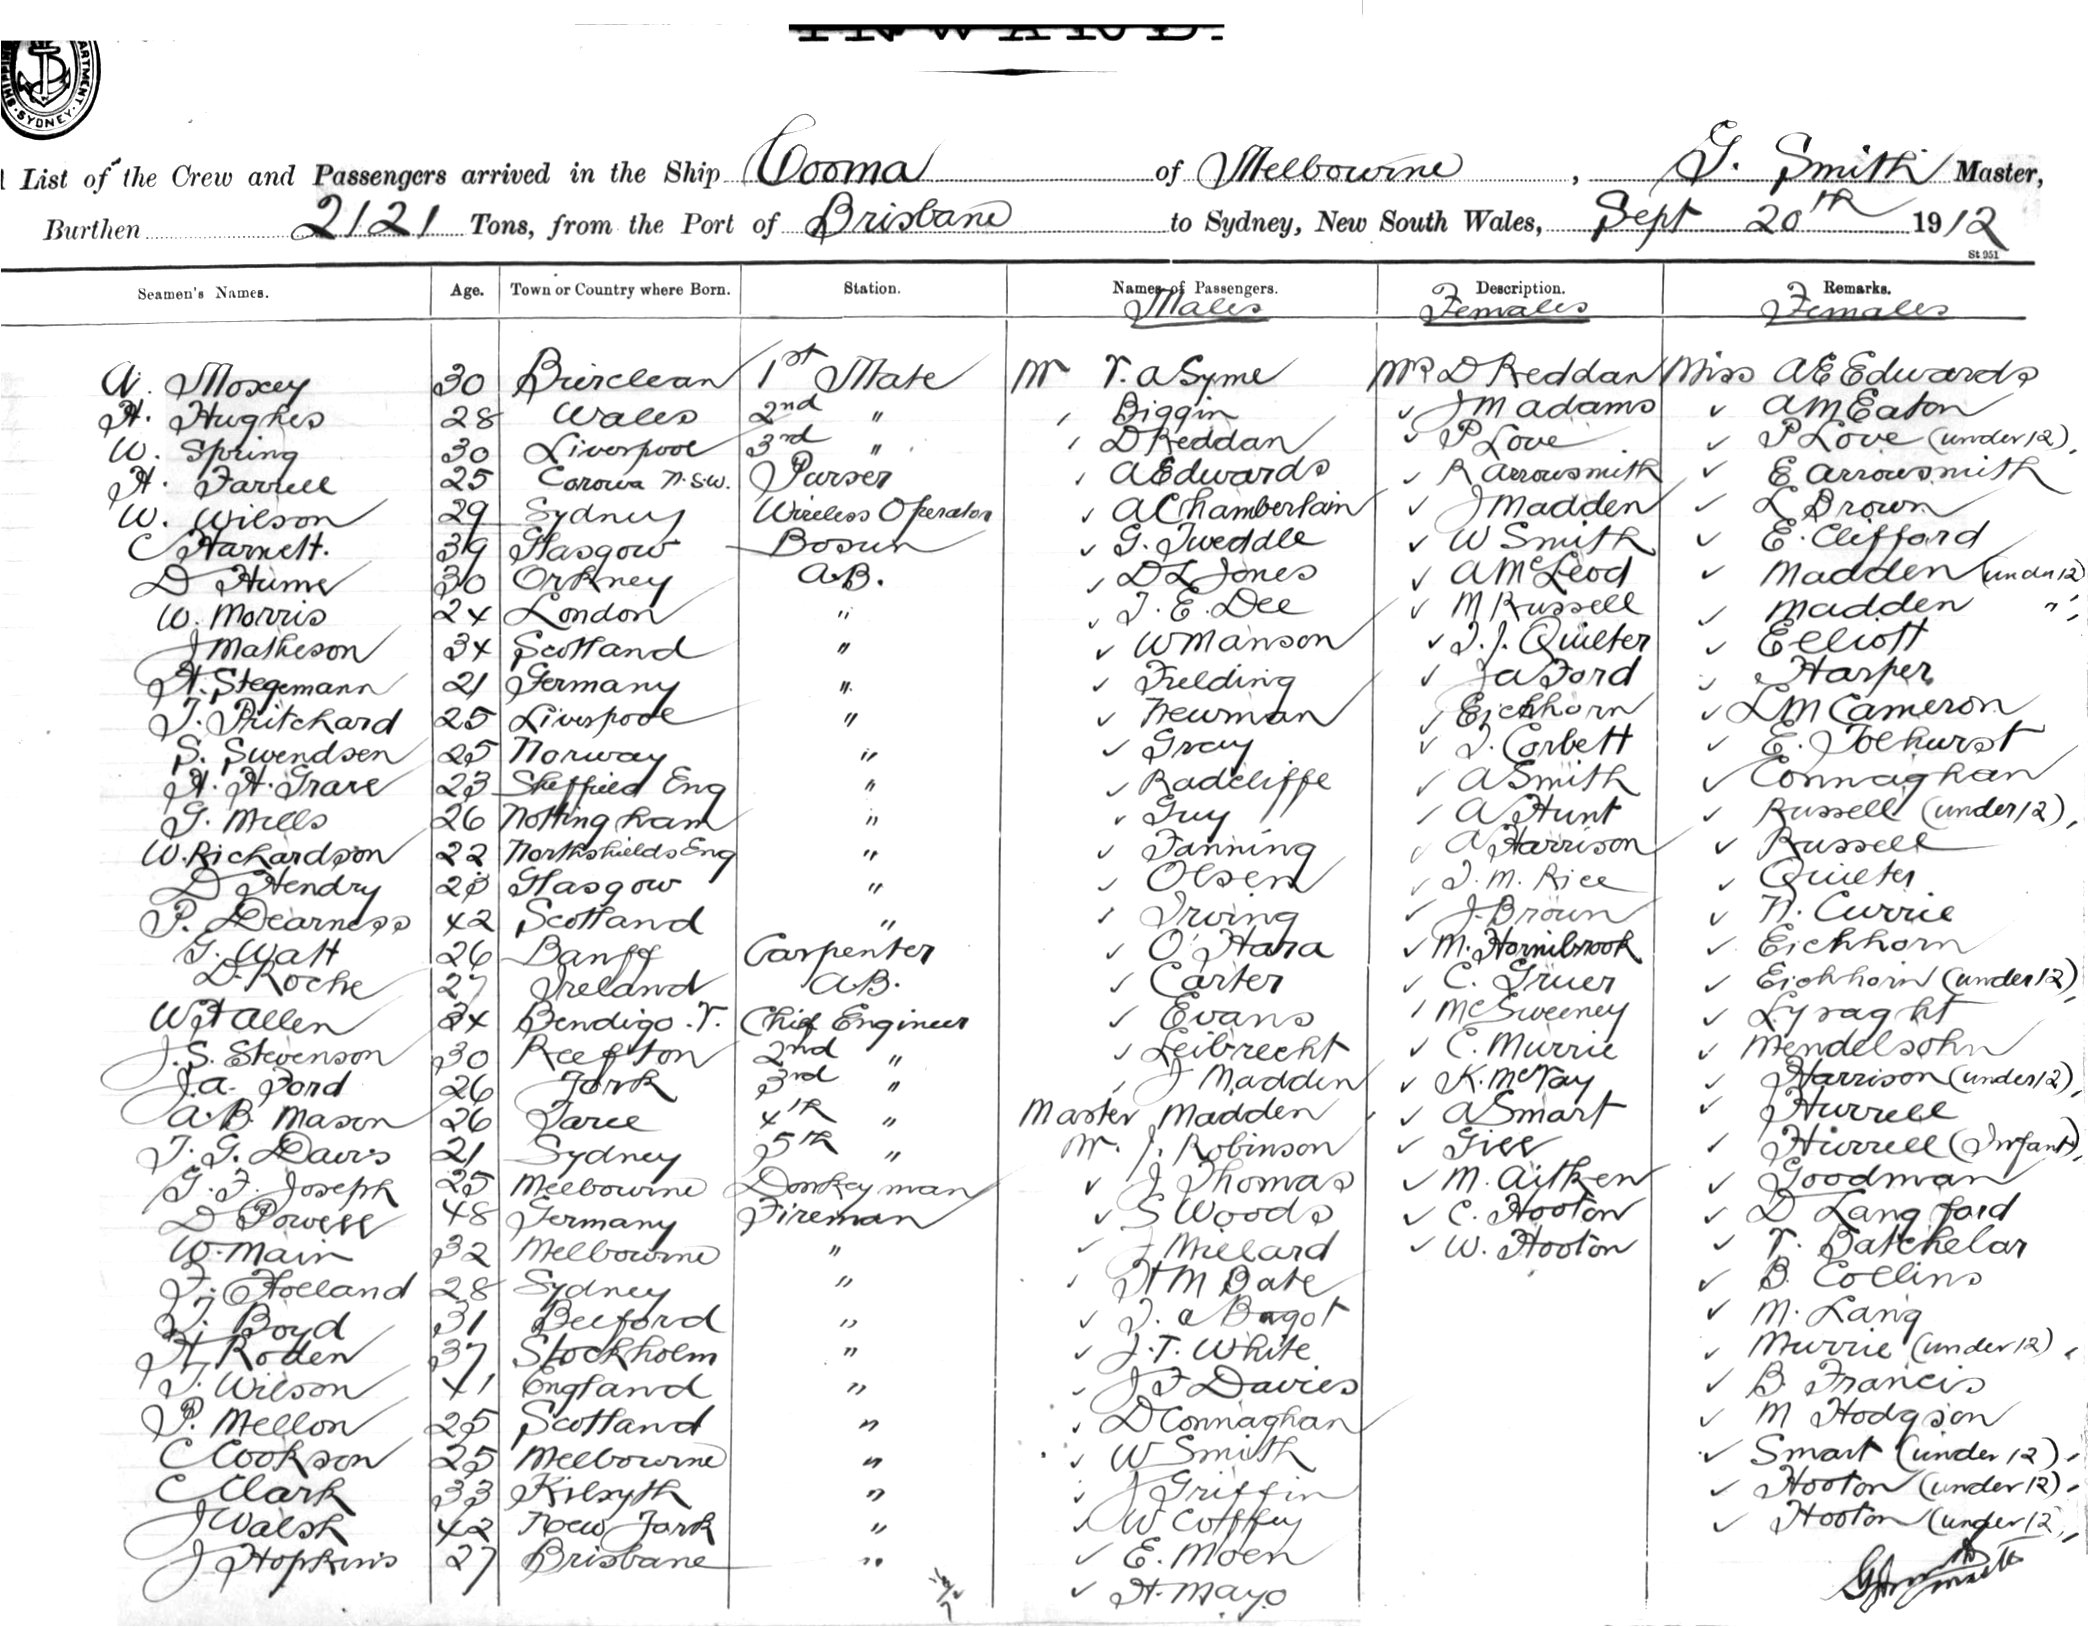 INWARD.
ARTMENT. SYDNEY. SHIPPING
List of the Crew and Passengers arrived in the Ship Cooma of Melbourne, G. Smith Master,
Burthen 2121 Tons, from the Port of Brisbane to Sydney, New South Wales, Sept 20th 1912
St 951
Seamen's Names. Age. Town or Country where Born. Station. Names of Passengers. Description. Remarks.
Males Females Females
A. Moxey 30 1st Mate Mr V. A Syme Mrs D Reddan Miss AE Edwards
H. Hughes 28 Wales 2nd " Biggin ✓ J M Adams ✓ AM Eaton
W. Spring 30 Liverpool 3rd " D Reddan ✓ P Love ✓ P Love (under 12)
H. Farrell 25 Corowa N.S.W. Purser A Edwards ✓ R Arrowsmith ✓ E Arrowsmith
W. Wilson 29 Sydney Wireless Operator ✓ A Chamberlain ✓ J Madden ✓ L Brown
C Harnett. 39 Glasgow Bosun ✓ G. Tweddle ✓ W Smith ✓ E. Clifford
D Hume 30 Orkney A.B. ✓ D L Jones ✓ A McLeod ✓ Madden (under 12)
W. Morris 24 London " ✓ T. E. Dee ✓ M Russell ✓ Madden "
J Matheson 34 Scotland " ✓ W Manson ✓ T. J. Quilter ✓ Elliott
H. Stegemann 21 Germany " ✓ Fielding ✓ J A Ford ✓ Harper
T. Pritchard 25 Liverpool " ✓ Newman ✓ Eichhorn ✓ L M Cameron
S. Swendsen 25 Norway " ✓ Gray ✓ T. Corbett ✓ E. Tolhurst
H. H. Grave 23 Sheffield Eng " ✓ Radcliffe ✓ A Smith ✓ Connaghan
G. Mills 26 Nottingham " ✓ Guy ✓ A Hunt ✓ Russell (under 12)
W. Richardson 22 Northshields Eng " ✓ Fanning ✓ A Harrison ✓ Russell
D Hendry 28 Glasgow " ✓ Olsen ✓ T. M. Rice ✓ Quilter
P. Dearness 42 Scotland " ✓ Irving ✓ J. Brown ✓ N. Currie
G. Watt 26 Banff Carpenter ✓ O'Hara ✓ M. Hornibrook ✓ Eichhorn
D. Roche 27 Ireland A.B. ✓ Carter ✓ C. Gruer ✓ Eichhorn (under 12)
W H Allen 34 Bendigo. V. Chief Engineer ✓ Evans ✓ McSweeney ✓ Lysaght
J. S. Stevenson 30 Reefton 2nd " ✓ Leibrecht ✓ C. Murrie ✓ Mendelsohn
J. A. Ford 26 York 3rd " J Madden ✓ K. McVay ✓ Harrison (under 12)
A. B. Mason 26 Taree 4th " Master Madden ✓ A Smart ✓ Hurrell
T. G. Davis 21 Sydney 5th " Mr. J. Robinson ✓ Gill ✓ Hurrell (Infant)
G. F. Joseph 25 Melbourne Donkeyman ✓ J Thomas ✓ M. Aitken ✓ Goodman
D Powell 48 Germany Fireman ✓ S Woods ✓ C. Hooton ✓ D Langford
W. Main 32 Melbourne " ✓ J Millard ✓ W. Hooton ✓ V. Batchelar
F. Holland 28 Sydney " ✓ H M Date ✓ B. Collins
T. Boyd 31 Belford " ✓ T. A Bagot ✓ M. Lang
H. Roden 37 Stockholm " ✓ J. T. White ✓ Murrie (under 12)
T. Wilson 41 England " ✓ J F Davies ✓ B. Francis
P. Mellon 25 Scotland " ✓ D Connaghan ✓ M Hodgson
C Cookson 25 Melbourne " ✓ W Smith ✓ Smart (under 12)
C Clark 33 Kilsyth " ✓ J Griffin ✓ Hooton (under 12)
J Walsh 42 New York " ✓ W Coffey ✓ Hooton (under 12)
J Hopkins 27 Brisbane " ✓ E. Moen
✓ H. Mayo